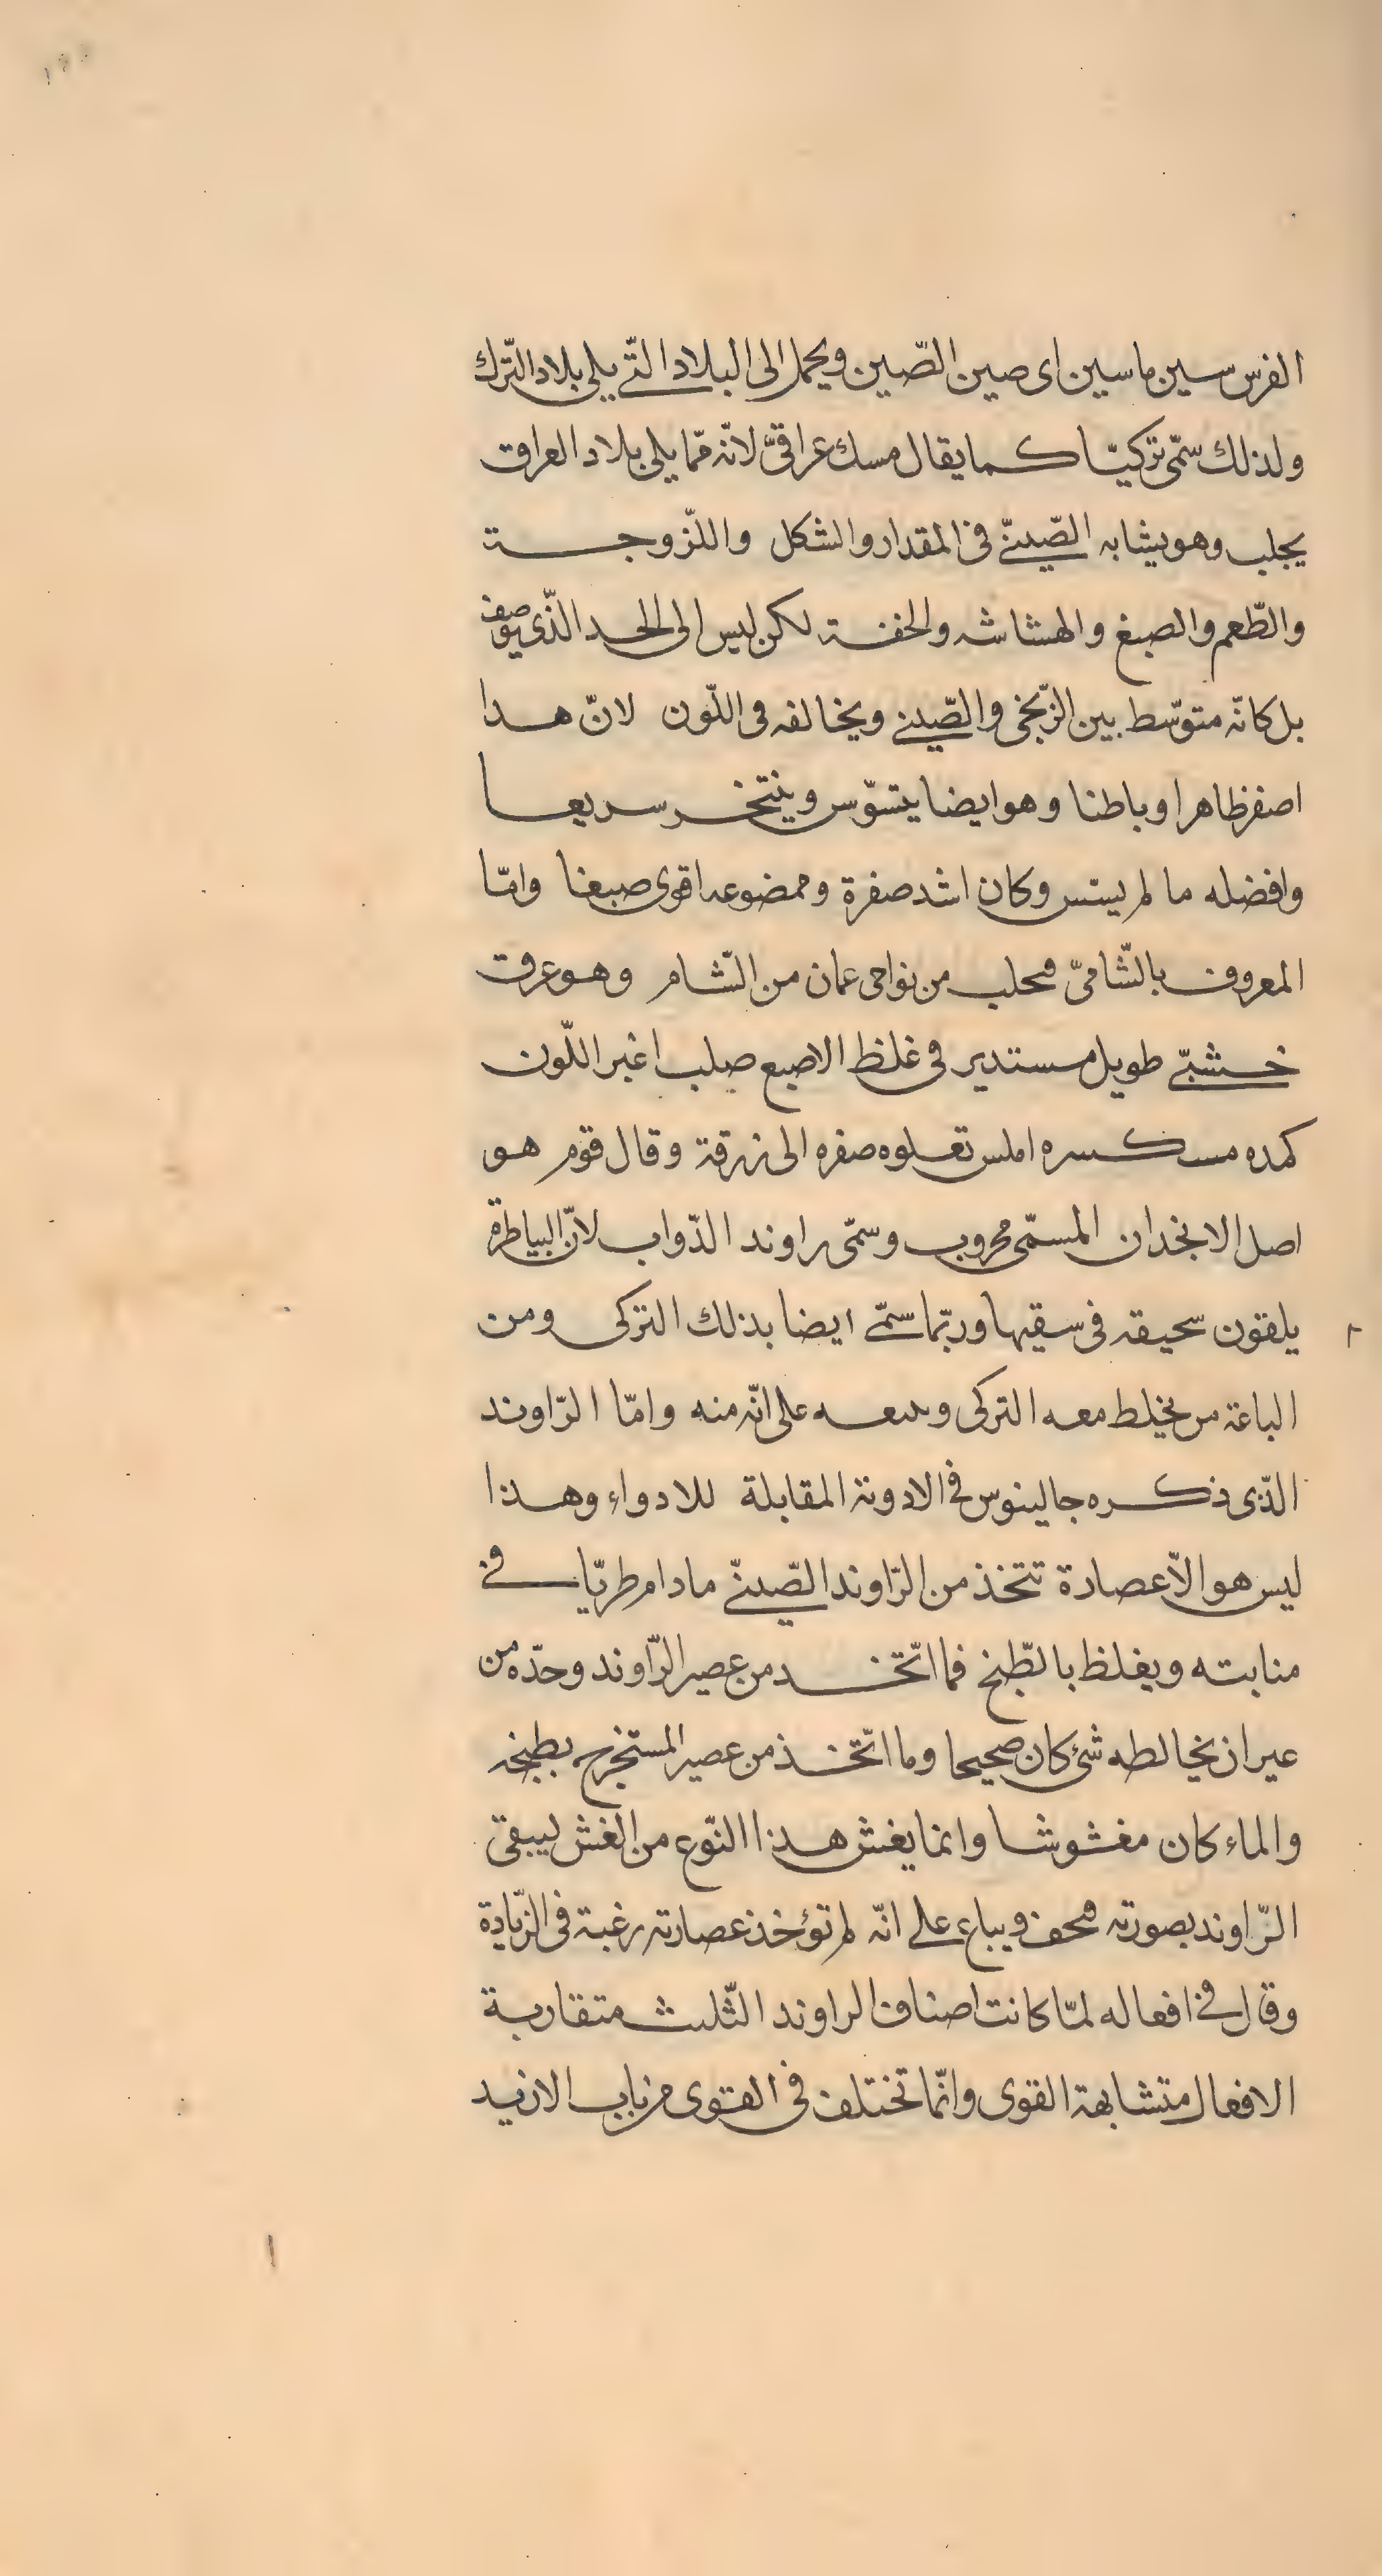 الفرس سين ماسين اى صين الصّين ويحمل الى البلاد التّي يلى بلاد التّرك
ولذلك سمّى تركيّا كما يقال مسك عراقيّ لانّه ممّا يلى بلاد العراق
يجلب وهو يشابه الصّينيّ في المقدار والشكل واللّزوجة
والطّعم والصبغ والهشاشه والخفة لكن ليس الى الحد الذّى يوصف
بل كانّه متوّسط بين الزّنجى والصّينى ويخالفه فى اللّون لانّ هدا
اصفر ظاهرا وباطنا وهو ايضا يتسوّس وينتخر سريعا
وافضله ما لم يستس وكان اشد صفرة وممضوعه اقوى صبغا وامّا
المعروف بالشّاميّ فيحلب من نواحى عمان من الشّام وهو عرق
خشبيّ طويل مستدير فى غلظ الاصبع صلب اغبر اللّون
كمده مسكسره املس تعلوه صفره الى زرقة وقال قوم هو
اصل الانجدان المسمّى محروب وسمّى راوند الدّواب لانّ البياطرة
يلقون سحيقه فى سقيها وربّما سمّى ايضا بذلك التركى ومن
الباعة من يخيلط معه التركى وىىىعه على انّه منه وامّا الرّاوند
الذّى ذكره جالينوس فى الادوية المقابلة للادواء وهذا
ليس هو الاّ عصارة تتخذ من الرّاوند الصّينيّ مادام طريّا في
منابته ويغلظ بالطّبخ فما اتّخد من عصير الرّاوند وحدّه من
عير ان يخالطه شئ كان صحيحا وما اتّخذ من عصير المستخرج بطبخه
والماء كان مغشوشا وانما يغش هذا النّوع من الغش ليبقى
الرّاوند بصورته فيحف ويباع على انّه لم تؤخذ عصارته رغبة فى الزّيادة
وقال في افعاله لمّا كانت اصناف الراوند الثّلث متقاربة
الافعال متشابهة القوى وانّما تختلف فى القوى من باب الازيد